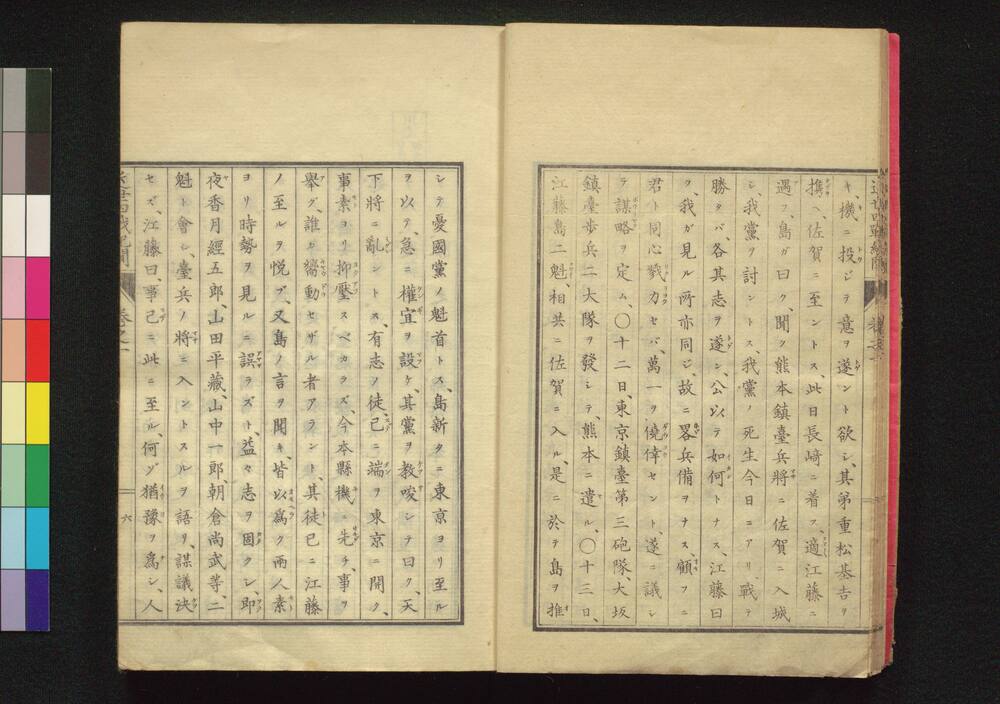 キ機ニ投ジテ意ヲ遂ント欲シ、其弟重松基吉ヲ
携ヘ、佐賀ニ至ントス、此日長崎ニ着ス、適江藤ニ
遇フ、島ガ曰ク、聞ク熊本鎮臺兵將ニ佐賀ニ入城
シ、我黨ヲ討ントス、我黨ノ死生今日ニアリ、戰テ
勝タバ、各其志ヲ遂ン、公以テ如何トナス、江藤曰
ク、我ガ見ル所亦同ジ、故ニ畧兵備ヲナス、願フニ
君ト同心戮力セバ、萬一ヲ僥倖セント、遂ニ議シ
テ謀略ヲ定ム、〇十二日、東京鎮臺第三砲隊、大坂
鎮臺歩兵二大隊ヲ發シテ、熊本ニ遣ル、〇十三日、
江藤島二魁、相共ニ佐賀ニ入ル、是ニ於テ島ヲ推
シテ憂國黨ノ魁首トス、島新タニ東京ヨリ至ル
ヲ以テ、急ニ權宜ヲ設ケ、其黨ヲ教唆シテ曰ク、天
下將ニ亂ントス、有志ノ徒、已ニ端ヲ東京ニ開ク、
事素ヨリ抑壓スベカラズ、今本縣機ニ先チ、事ヲ
舉グ、誰カ嚮動セザル者アラント、其徒已ニ江藤
ノ至ルヲ悦ブ、又島ノ言ヲ聞キ、皆以爲ク兩人素
ヨリ時勢ヲ見ルニ誤ラズト、益々志ヲ固クシ、即
夜香月經五郎、山田平藏、山中一郎、朝倉尚武等、二
魁ト會シ、臺兵ノ將ニ入ントスルヲ語リ、謀議決
セズ、江藤曰、事已ニ此ニ至ル、何ゾ猶豫ヲ爲シ、人
卷之一
六